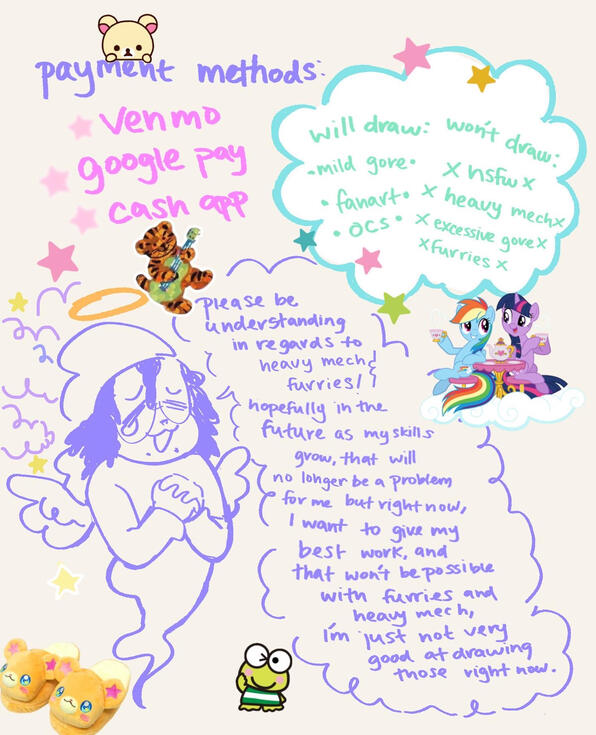 payment methods:
venmo
google pay
cash app
will draw:
• mild gore •
• fanart •
• OCS •
won't draw:
x nsfw x
x heavy mech x
x excessive gore x
x furries x
please be
understanding
in regards to
heavy mech &
furries!
hopefully in the
future as my skills
grow, that will
no longer be a problem
for me but right now,
I want to give my
best work, and
that won't be possible
with furries and
heavy mech,
i'm just not very
good at drawing
those right now.